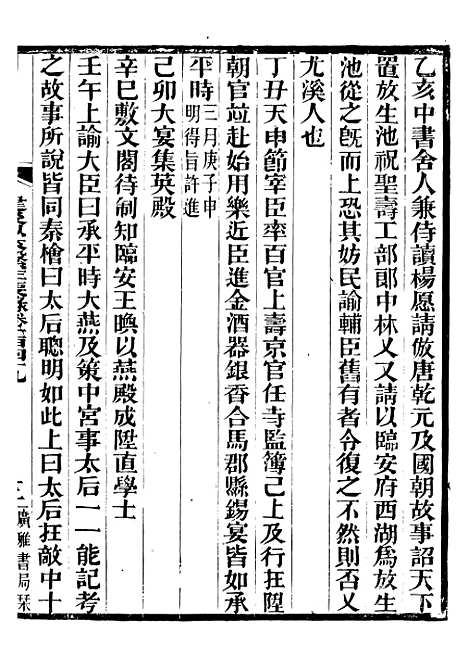 乙亥中書舍人兼侍讀楊愿請倣唐乾元及國朝故事詔天下
置放生池祝聖壽工部郎中林乂又請以臨安府西湖爲放生
池從之旣而上恐其妨民諭輔臣舊有者令復之不然則否乂
尤溪人也
丁丑天申節宰臣率百官上壽京官任寺監簿已上及行在陞
朝官竝赴始用樂近臣進金酒器銀香合馬郡縣錫宴皆如承
平時三月庚子申
明得旨許進
己卯大宴集英殿
辛巳敷文閣待制知臨安王㬇以燕殿成陞直學士
壬午上諭大臣曰承平時大燕及策中宮事太后一一能記考
之故事所說皆同秦檜曰太后聰明如此上曰太后在敵中十
廣雅書局栞